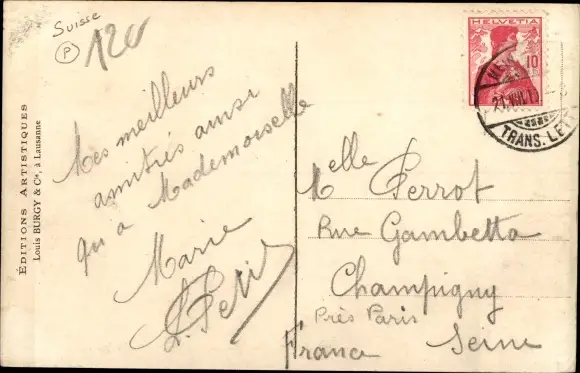 Suisse
P
120
ÉDITIONS ARTISTIQUES
Louis BURGY & Cie, à Lausanne
Mes meilleurs
amitiés ainsi
qu'a Mademoiselle
Marie
L. Petit
HELVETIA
10
TRANS. LET
Melle Perrot
Rue Gambetta
Champigny
Près Paris
Seine
France